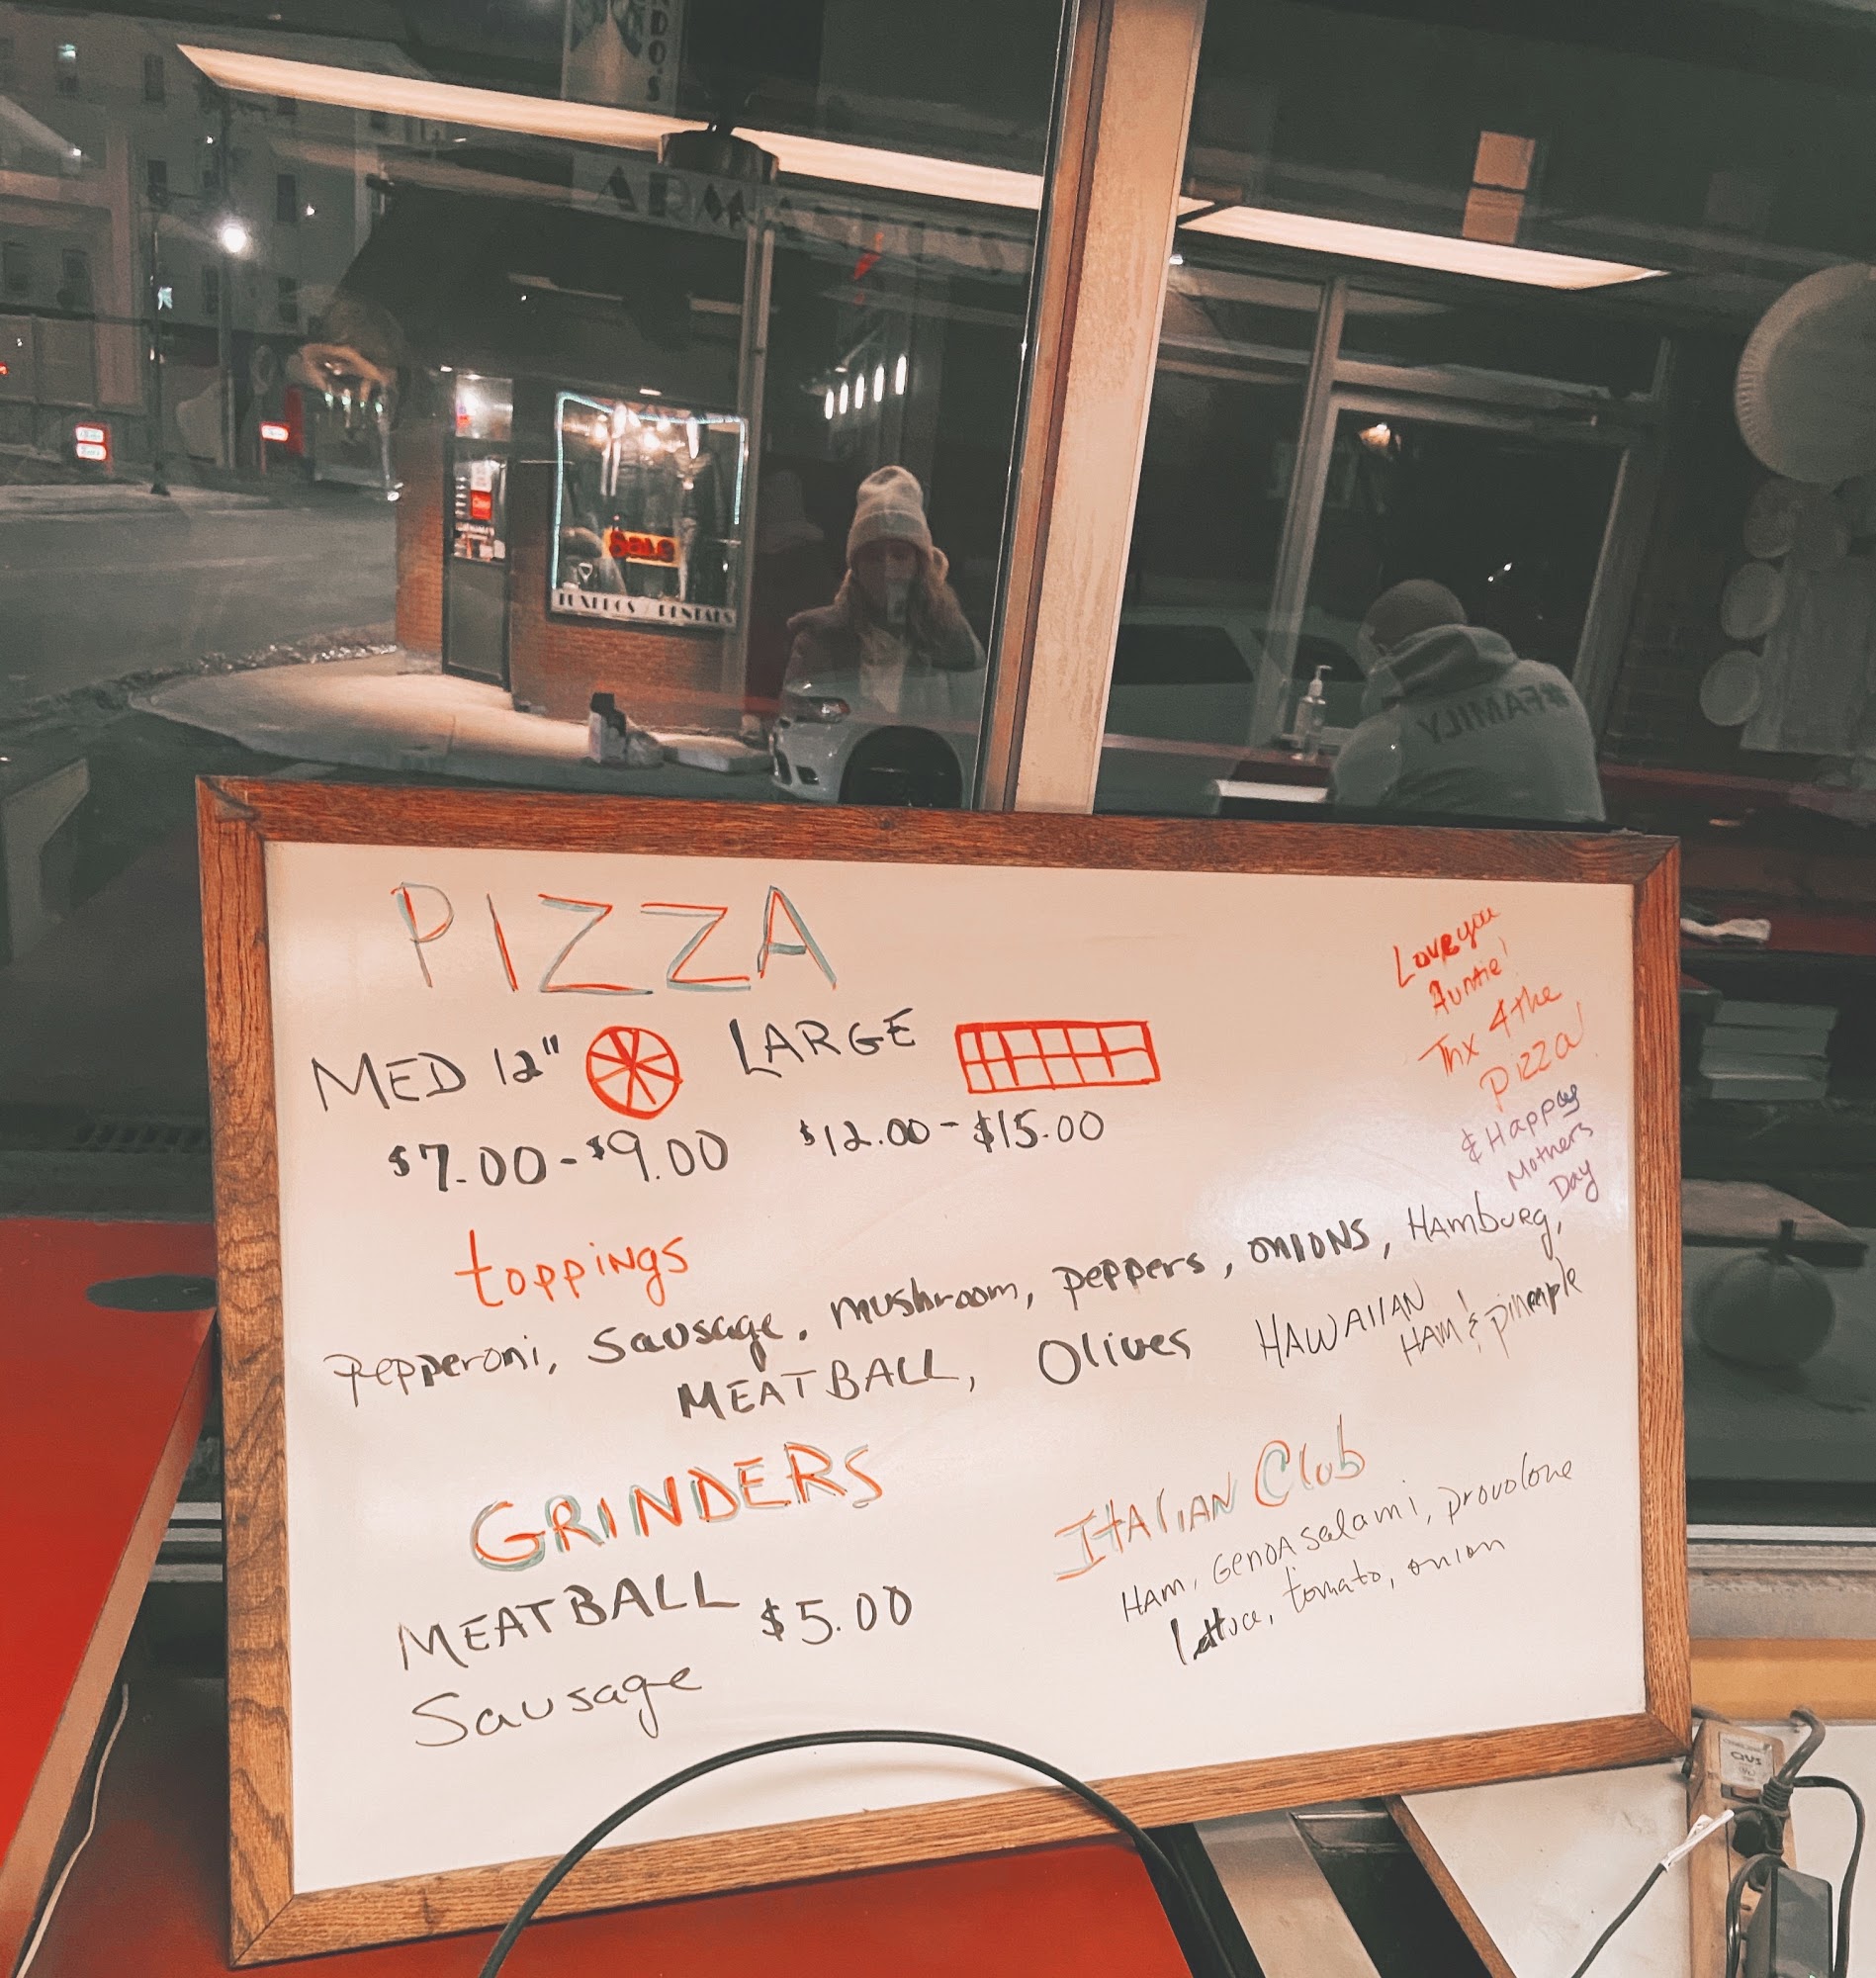 ARMANDO'S
Sale
TUXEDOS / RENTALS
#FAMILY
PIZZA
MED 12" LARGE
$7.00-$9.00 $12.00-$15.00
Love you
Auntie!
Thx 4 the
Pizza!
& Happy
Mothers
Day
toppings
Pepperoni, Sausage, mushroom, peppers, onIONS, HAmburg,
MEATBALL, Olives HAWAIIAN!
HAM & pineaple
GRINDERS
MEATBALL $5.00
Sausage
ITAlIAN Club
HAm, GenoA salami, provolone
lettuce, tomato, onion